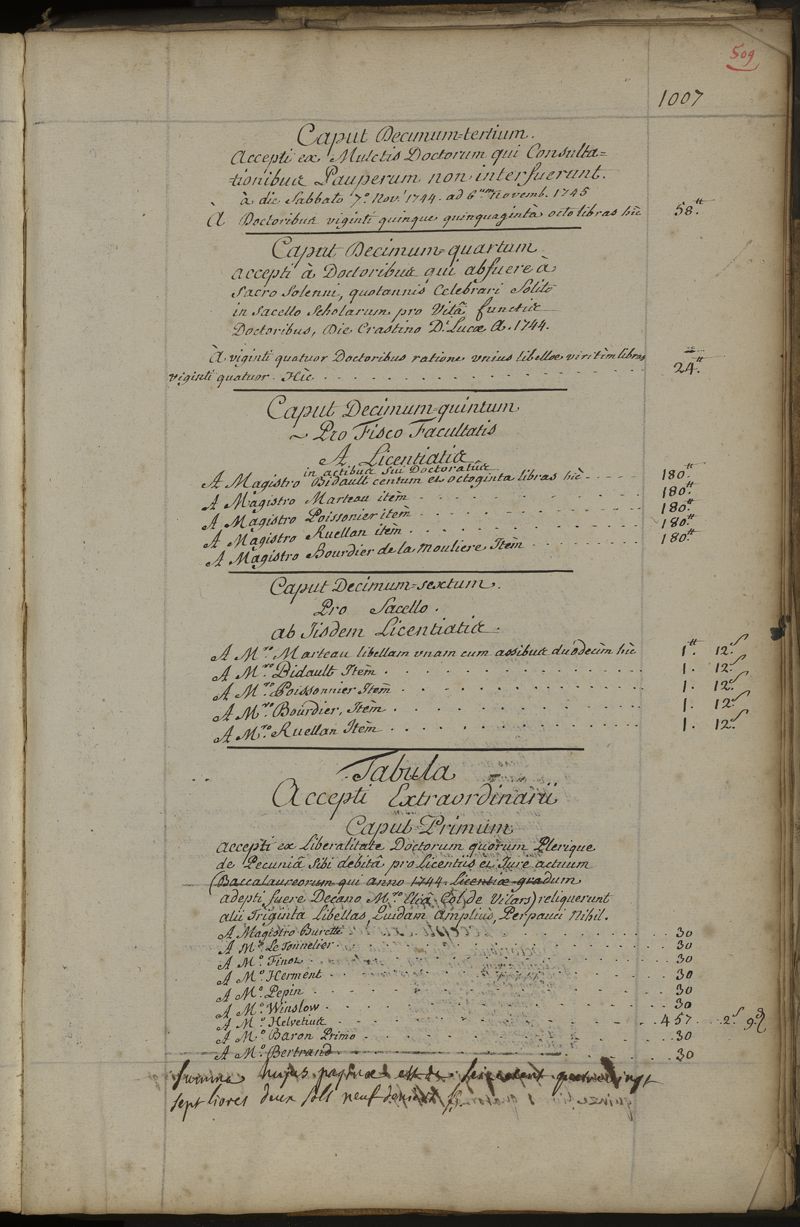 509
1007
Caput Decimum=tertium.
Accepti ex Mulctis Doctorum qui Consulta=
tionibus Pauperum non interfuerunt.
à die Sabbato 7ª. Nov! 1744. ad 6.um Novemb. 1745
À Doctoribus viginti quinque quinquaginta octo libras hic 58.tt
Caput Decimum=quartum
accepti à Doctoribus qui abfuere à
Sacro Solenni, quotannis Celebrari Solito
in Sacello Scholarum pro Vitâ functis
Doctoribus, Die Crastino D.i Lucæ A. 1744.
À viginti quatuor Doctoribus ratione unius libellæ viritim libras
viginti quatuor. Hic . . . . . 24.tt
Caput Decimum=quintum
~ Pro Fisco Facultatis
A Licentiatis
in actibus sui Doctoratus
A Magistro Bidault centum et octoginta libras hic - - - - 180.tt
A Magistro Marteau item . . . . 180.tt
A Magistro Poissonier item . . . . 180.tt
A Magistro Ruellan item . . . . 180.tt
A Magistro Bourdier de la Mouliere Item . . . . 180.tt
Caput Decimum=sextum.
Pro Sacello.
ab Iisdem Licentiatis.
A M.ro Marteau libellam unam cum assibus duodecim hic 1.tt 12.s
A M.ro Bidault Item . . . . 1. 12.s
A M.ro Poissonnier Item . . . . 1. 12.s
A M.ro Bourdier, Item . . . . 1. 12.s
A M.ro Ruellan Item . . . . 1. 12.s
Tabula
Accepti Extraordinarii
Caput Primum
accepti ex Liberalitate Doctorum quorum Plerique
de Pecuniâ Sibi debitâ pro Licentiis et Jure actuum
(Baccalaureorum qui anno 1744. Licentiæ gradum
adepti fuere Decano M.ro Eliâ Col de Vilars) reliquerunt
alii Triginta Libellas, Quidam Amplius, Perpauci Nihil.
A Magistro Burette . . . . 30
A M.o Le Tonnelier . . . . 30
A M.o Finot . . . . 30
A M.o Herment . . . . 30
A M.o Pepin . . . . 30
A M.o Winslow . . . . 30
A M.o Helvetius . . . . 457. 2.s 9.d
A M.o Baron Primo . . . . 30
A M.o Bertrand . . . . 30
Summa hujus paginæ est de seize cent quatrevingt
sept livres deux sols neuf deniers